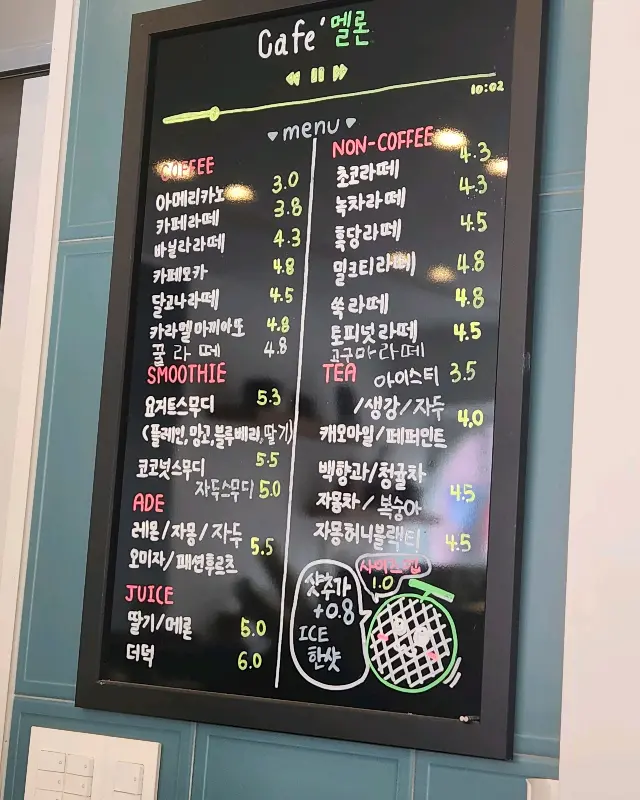 Cafe' 멜론
10:02
menu
COFFEE
아메리카노 3.0
카페라떼 3.8
바닐라라떼 4.3
카페모카 4.8
달고나라떼 4.5
카라멜마끼아또 4.8
꿀라떼 4.8
SMOOTHIE
요거트스무디 5.3
(플레인,망고,블루베리,딸기)
코코넛스무디 5.5
자두스무디 5.0
ADE
레몬/자몽/자두
오미자/패션후르츠 5.5
JUICE
딸기/메론 5.0
더덕 6.0
NON-COFFEE
초코라떼 4.3
녹차라떼 4.3
흑당라떼 4.5
밀크티라떼 4.8
쑥라떼 4.8
토피넛라떼 4.5
고구마라떼
TEA 아이스티 3.5
/생강/자두
캐모마일/페퍼민트 4.0
백향과/청귤차
자몽차/복숭아 4.5
자몽허니블랙티 4.5
샷추가
+0.8
ICE
한샷
사이즈업
1.0